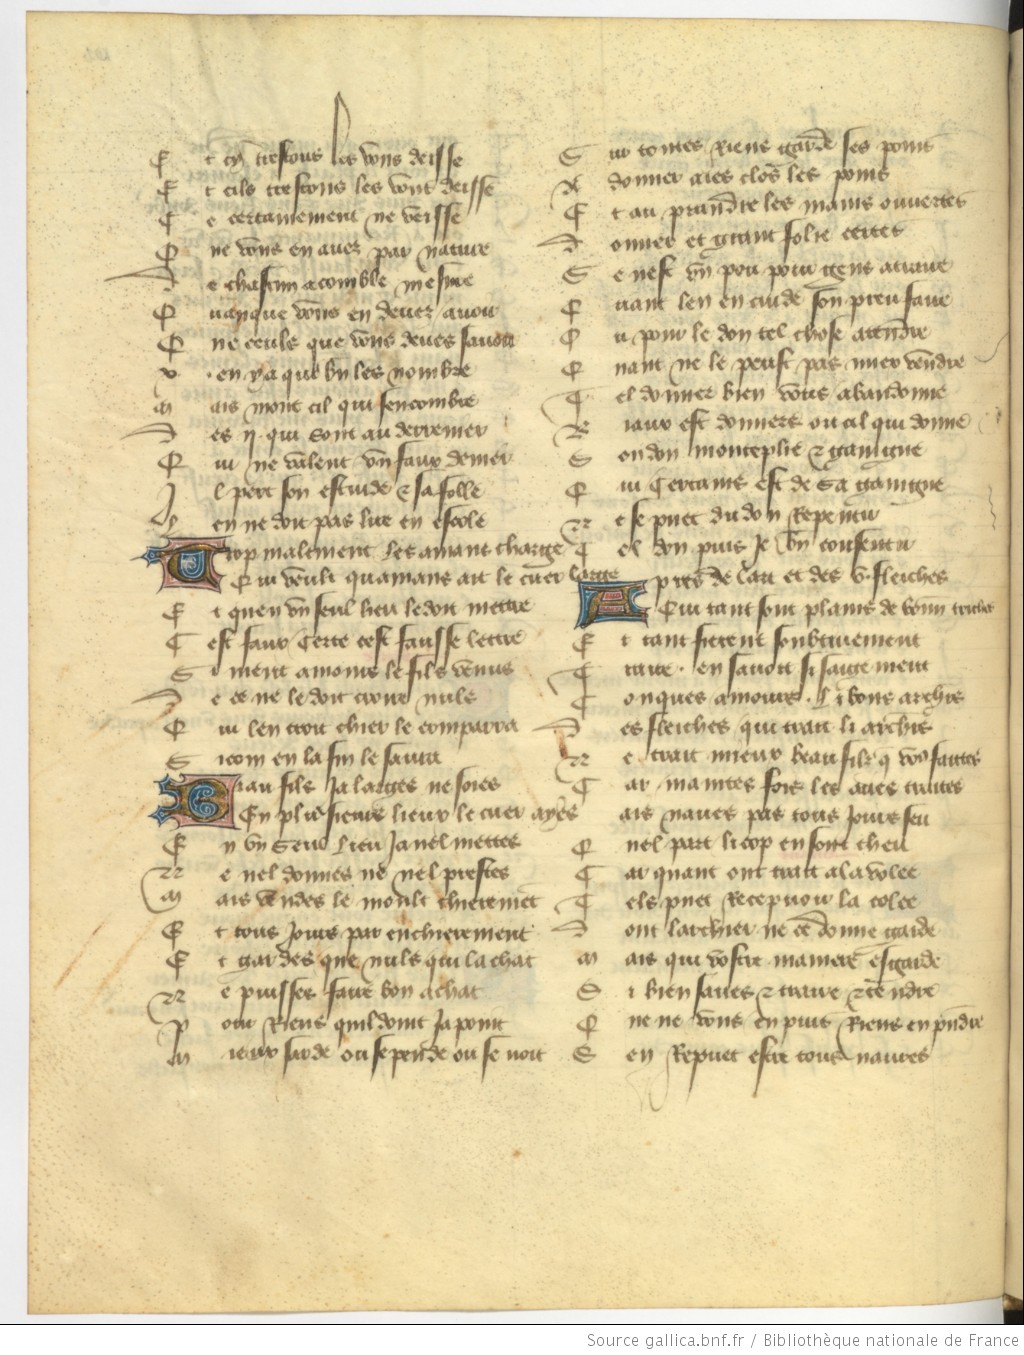 E t cil trestous les vous deisse
E t cils trestous les vont deisse
C e certainement ne veisse
Q ne vous en avez par nature
D e chascun acomble mesure
Q vanque vous en devez avoir
Q ne ceule que vous deves savoir
v en ya que bn les nombre
M ais mont cil qui sencombre
D es ij qui sont au derrenier
Q ui ne valent vn faux denier
I l pert son estuide z sa folle
L en ne doit pas lire en escole
Trop malement les amans charge
Q ui veult quamans ait le cuer large
E t quen vn seul lieu le doit mettre
C est faux certe cest fausse lettre
S i ment amours le fils venus
D e ce ne le doit croire nuls
Q ui len croit chier le comparra
S icom en la fin le saura
Biau fils Ja larges ne soies
En plusieurs lieux le cuer ayes
E n vn Seul Lieu Ja nel mettes
N e nel donnes ne nel prestes
M ais vendes le moult chierement
E t tous Jours par enchierement
E t gardes que nuls qui lachat
N e puisses faire bon achat
P our Riens quil doint Ja point
M ieux sarde ou se pende ou se noit
S ur toutes Riens garde ses poins
A donner aies clos les poins
E t au prandre les mains ouvertes
D onner et grant folie certes
S e nest vn pou pour gens atraire
Q uant len en cuide son preu faire
O u pour le don tel chose atendre
Q uant ne le peust pas mieux vendre
T el donner bien vous abandonne
B iaux est donners ou cil qui donne
S on don monteplie z gaaigne
Q ui Certains est de Sa gaaigne
N e se puet du don Repentir
T el don puis Je bien consentir
Apres de lart et des v fleiches
Qui tant sont plains de bonn teiches
E t tant fierent soubtivement
T raire en savoit si saigement
C onques amours Li bons archis
D es fleiches qui trait li archis
N e trait mieux beau filz q vous faittes
C ar maintes fois les aves traittes
M ais naves pas tous Jours seu
Q uel part li cop en sont cheu
C ar quant ont trait a la volee
T els puet Recepvoir la colee
D ont larchier ne ce donne garde
M ais qui vostre maniere esgarde
S i bien saves z traire z tendre
Q ne ne vous en puis Riens en pndre
S en Repuet estre tous navres